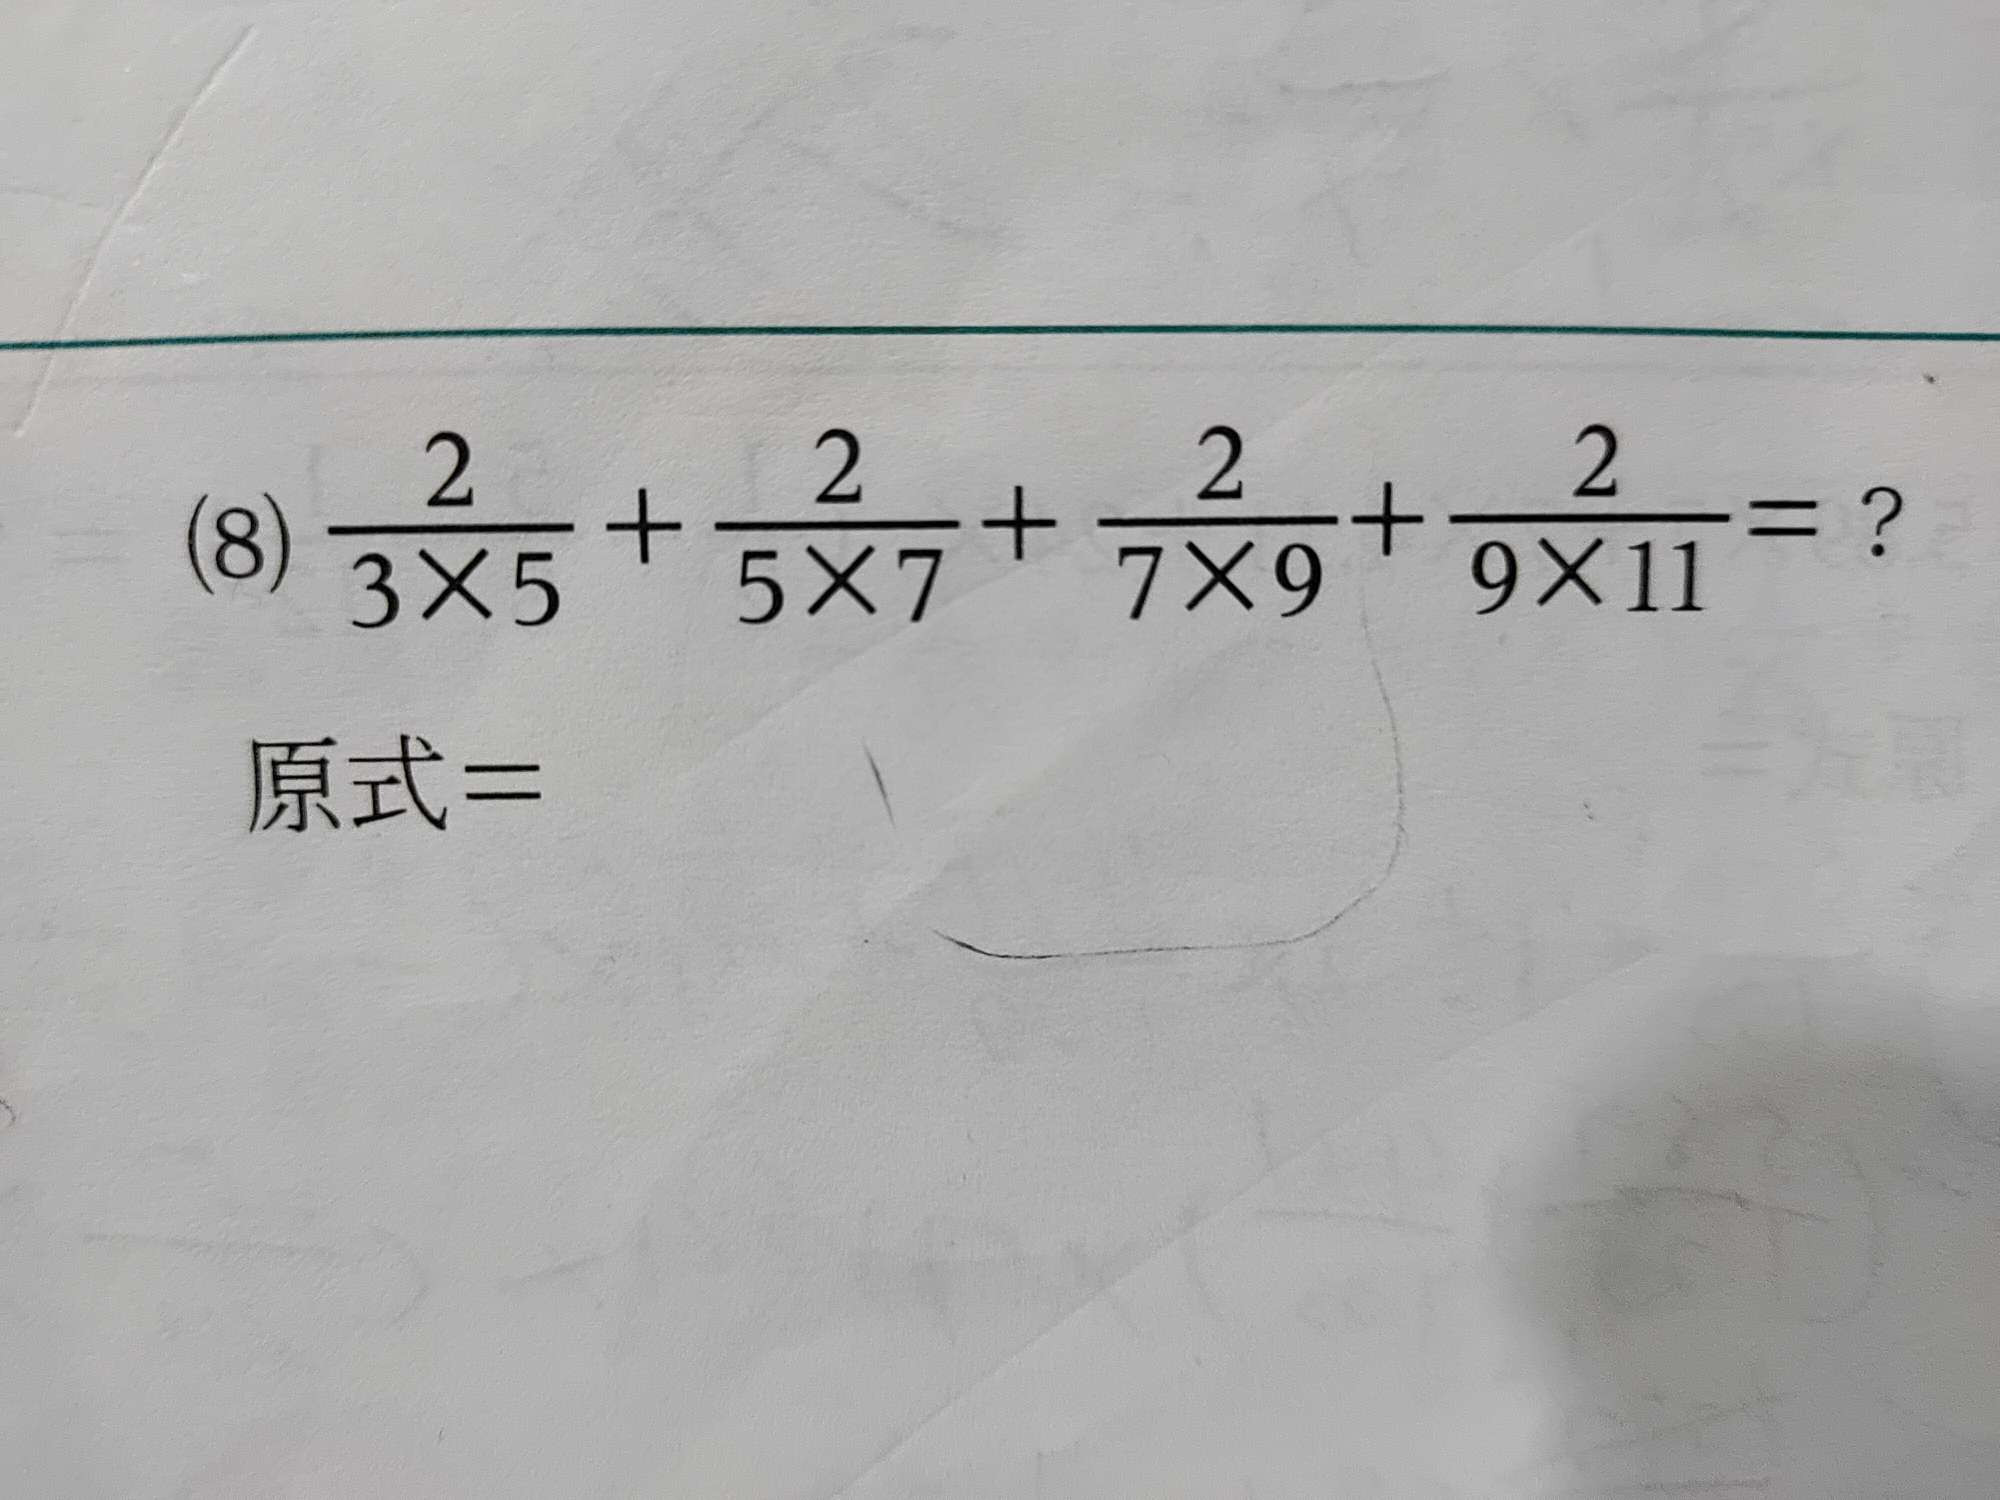 (8) \frac{2}{3×5}+\frac{2}{5×7}+\frac{2}{7×9}+\frac{2}{9×11}=?
原式=